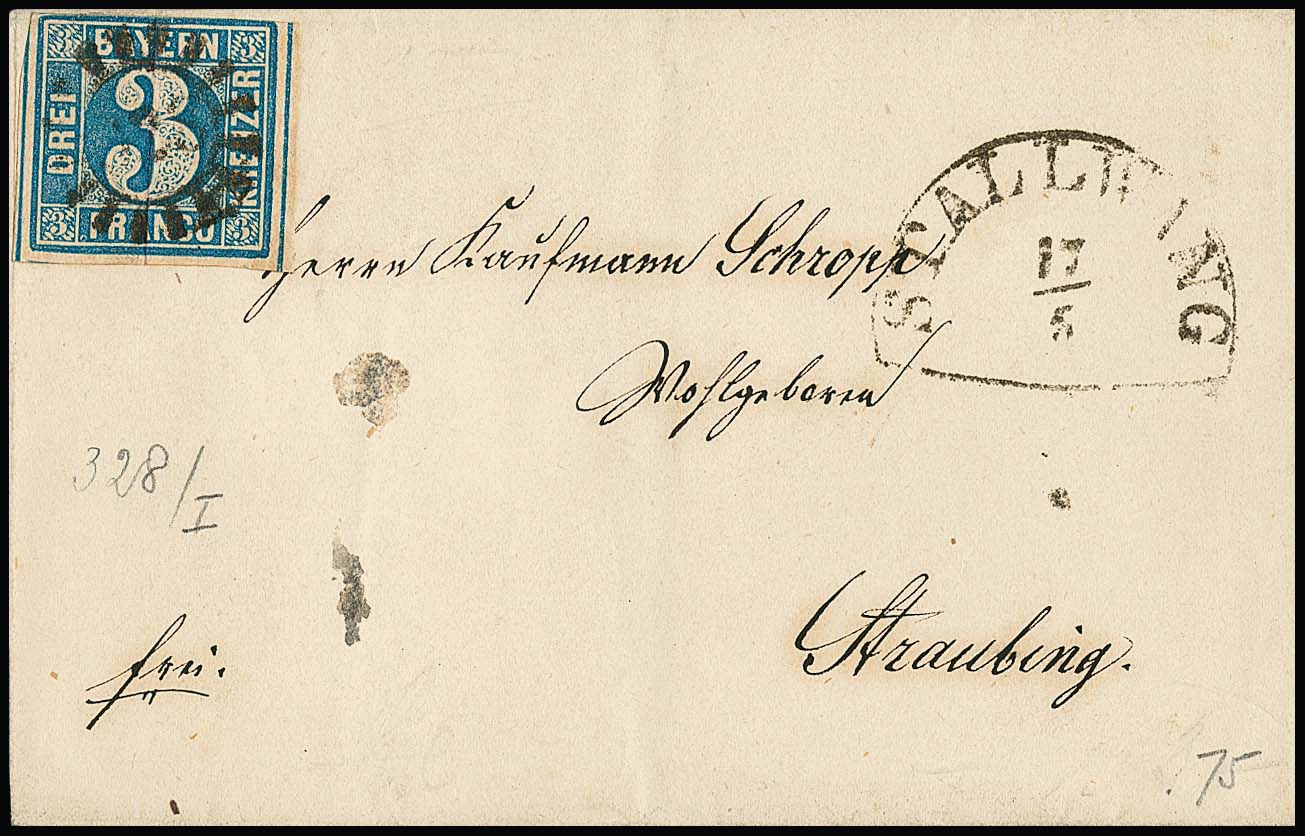 3 BAYERN 3
DREI 3 KREUZER
3 FRANCO 3
STALLWANG
17
5
Herrn Kaufmann Schropp
Wohlgeboren
328/I
frei.
Straubing.
75